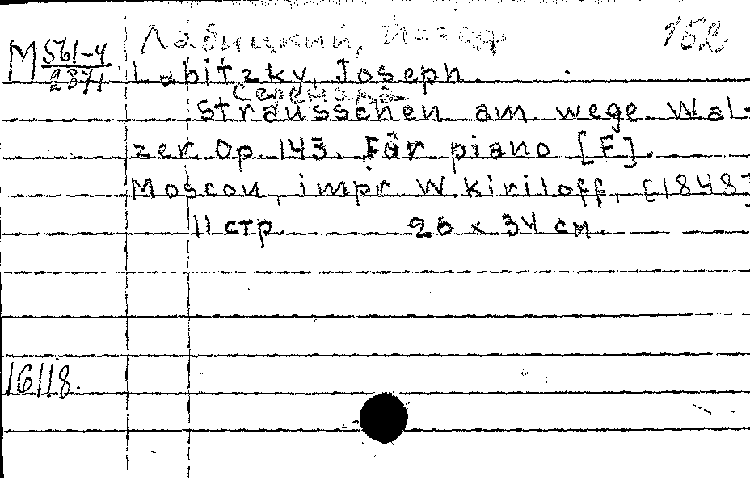 М 561-4/2871 Лабицкий, Иосеф 152
Labitzky, Joseph.
Серенада
Sträusschen am wege. Wal-
zer. Op. 143. Für piano [F].
Moscou, impr. W. Kiriloff, [1848]
11 стр. 26 x 34 см.
16118.